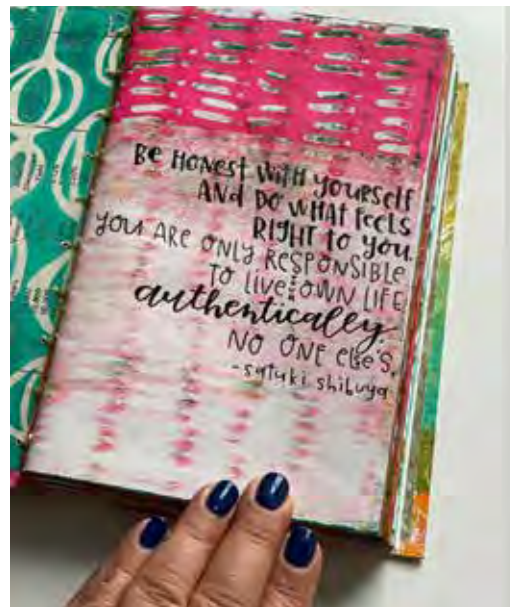 Be Honest with yourself
AND DO WHAT feels
RIGHT to you.
you ARE ONLY RESPONSIBLE
TO live your OWN LIFE
authentically.
NO ONE else's.
-satsuki shibuya